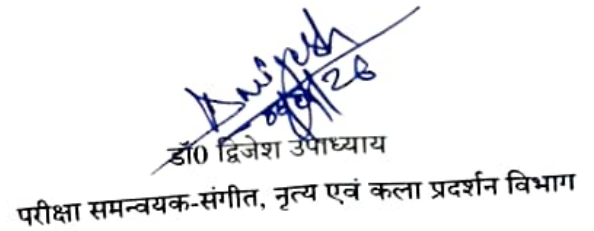 डॉ0 द्विजेश उपाध्याय
परीक्षा समन्वयक-संगीत, नृत्य एवं कला प्रदर्शन विभाग